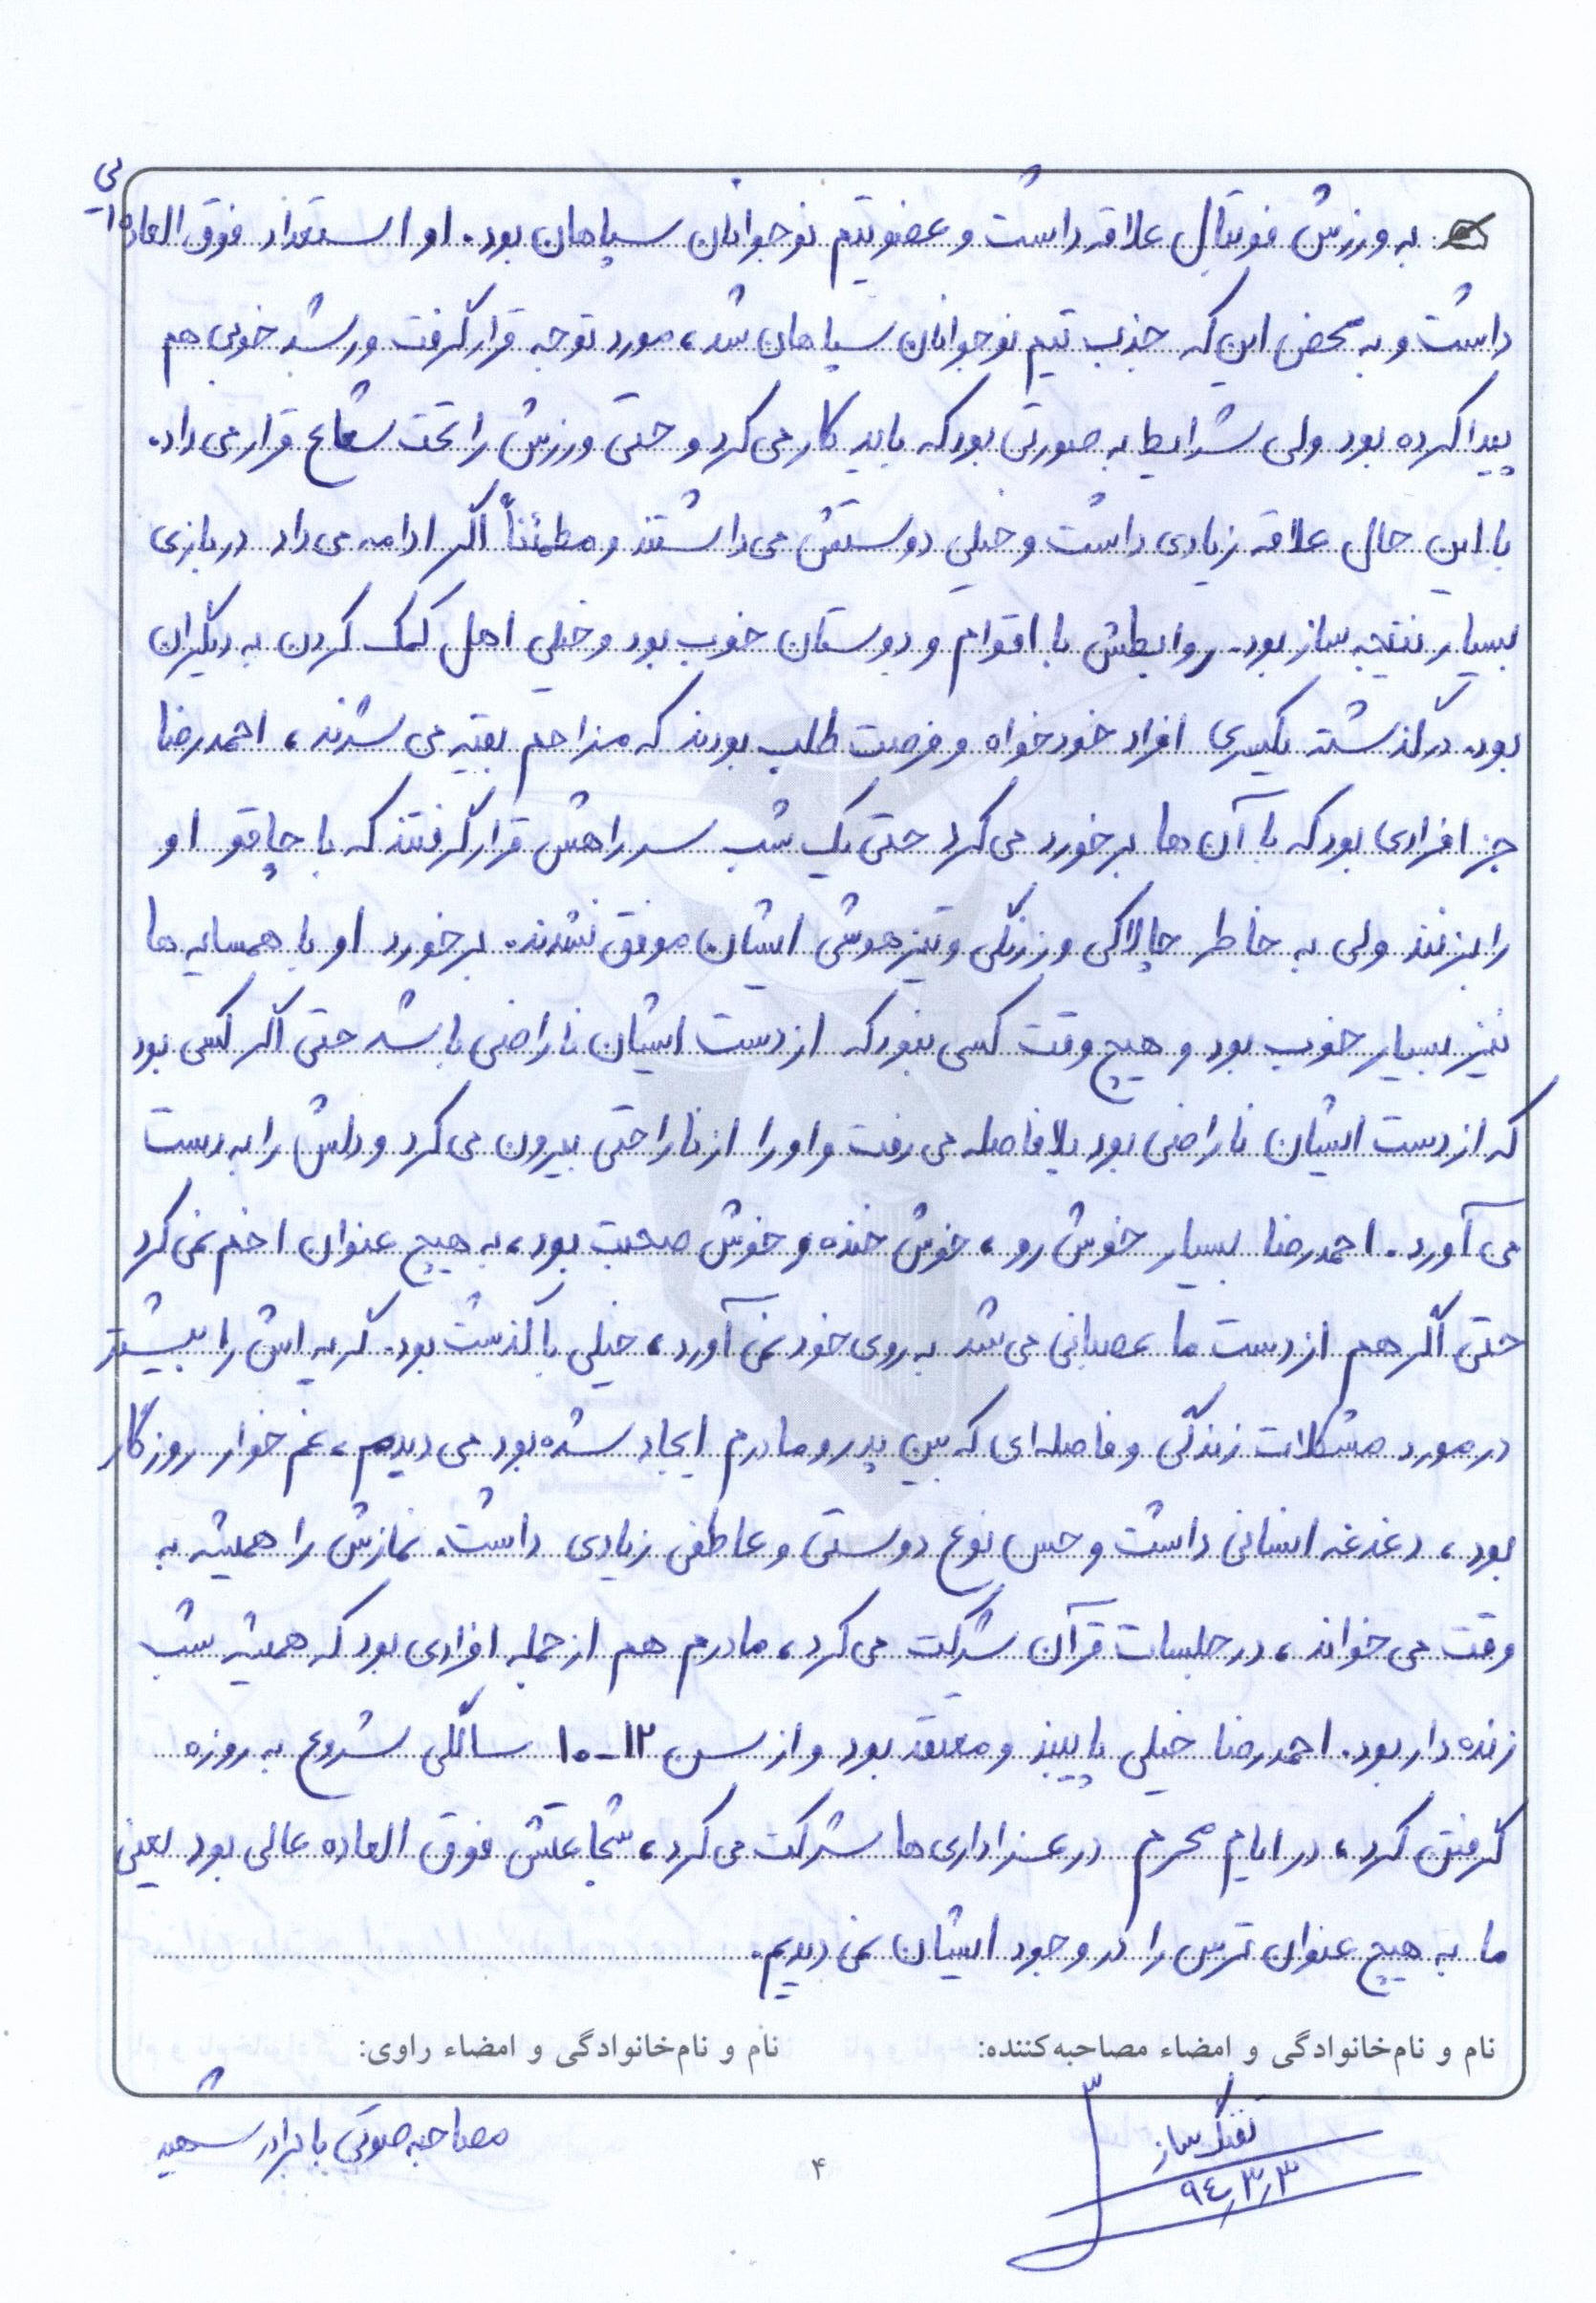 به ورزش فوتبال علاقه داشت و عضو تیم نوجوانان سپاهان بود. او استعداد فوق العاده ای
داشت و به محض این که جذب تیم نوجوانان سپاهان شد، مورد توجه قرار گرفت و رشد خوبی هم
پیدا کرده بود ولی شرایط به صورتی بود که باید کار می کرد و حتی ورزش را تحت شعاع قرار می داد.
با این حال علاقه زیادی داشت و خیلی دوستش می داشتند و مطمئناً اگر ادامه می داد در بازی
بسیار نتیجه ساز بود. روابطش با اقوام و دوستان خوب بود و خیلی اهل کمک کردن به دیگران
بود. در گذشته یکسری افراد خودخواه و فرصت طلب بودند که مزاحم بقیه می شدند، احمدرضا
جز افرادی بود که با آن ها برخورد می کرد حتی یک شب سر راهش قرار گرفتند که با چاقو او
را بزنند ولی به خاطر چالاکی و زرنگی و تیزهوشی ایشان موفق نشدند. برخورد او با همسایه ها
نیز بسیار خوب بود و هیچ وقت کسی نبود که از دست ایشان ناراضی باشد حتی اگر کسی بود
که از دست ایشان ناراضی بود بلافاصله می رفت و او را از ناراحتی بیرون می کرد و دلش را به دست
می آورد. احمدرضا بسیار خوش رو، خوش خنده و خوش صحبت بود، به هیچ عنوان اخم نمی کرد
حتی اگر هم از دست ما عصبانی می شد به روی خود نمی آورد، خیلی با گذشت بود. گریه اش را بیشتر
در مورد مشکلات زندگی و فاصله ای که بین پدر و مادرم ایجاد شده بود می دیدم، غم خوار روزگار
بود، دغدغه انسانی داشت و حس نوع دوستی و عاطفی زیادی داشت. نمازش را همیشه به
وقت می خواند، در جلسات قرآن شرکت می کرد، مادرم هم از جمله افرادی بود که همیشه شب
زنده دار بود. احمدرضا خیلی پایبند و معتقد بود و از سن ۱۲-۱۰ سالگی شروع به روزه
گرفتن کرد، در ایام محرم در عزاداری ها شرکت می کرد، شجاعتش فوق العاده عالی بود یعنی
ما به هیچ عنوان ترس را در وجود ایشان نمی دیدیم.
نام و نام‌خانوادگی و امضاء مصاحبه‌کننده: نام و نام‌خانوادگی و امضاء راوی:
تفنگ ساز مصاحبه صوتی با برادر شهید
۹۴٫۳٫۳
۴